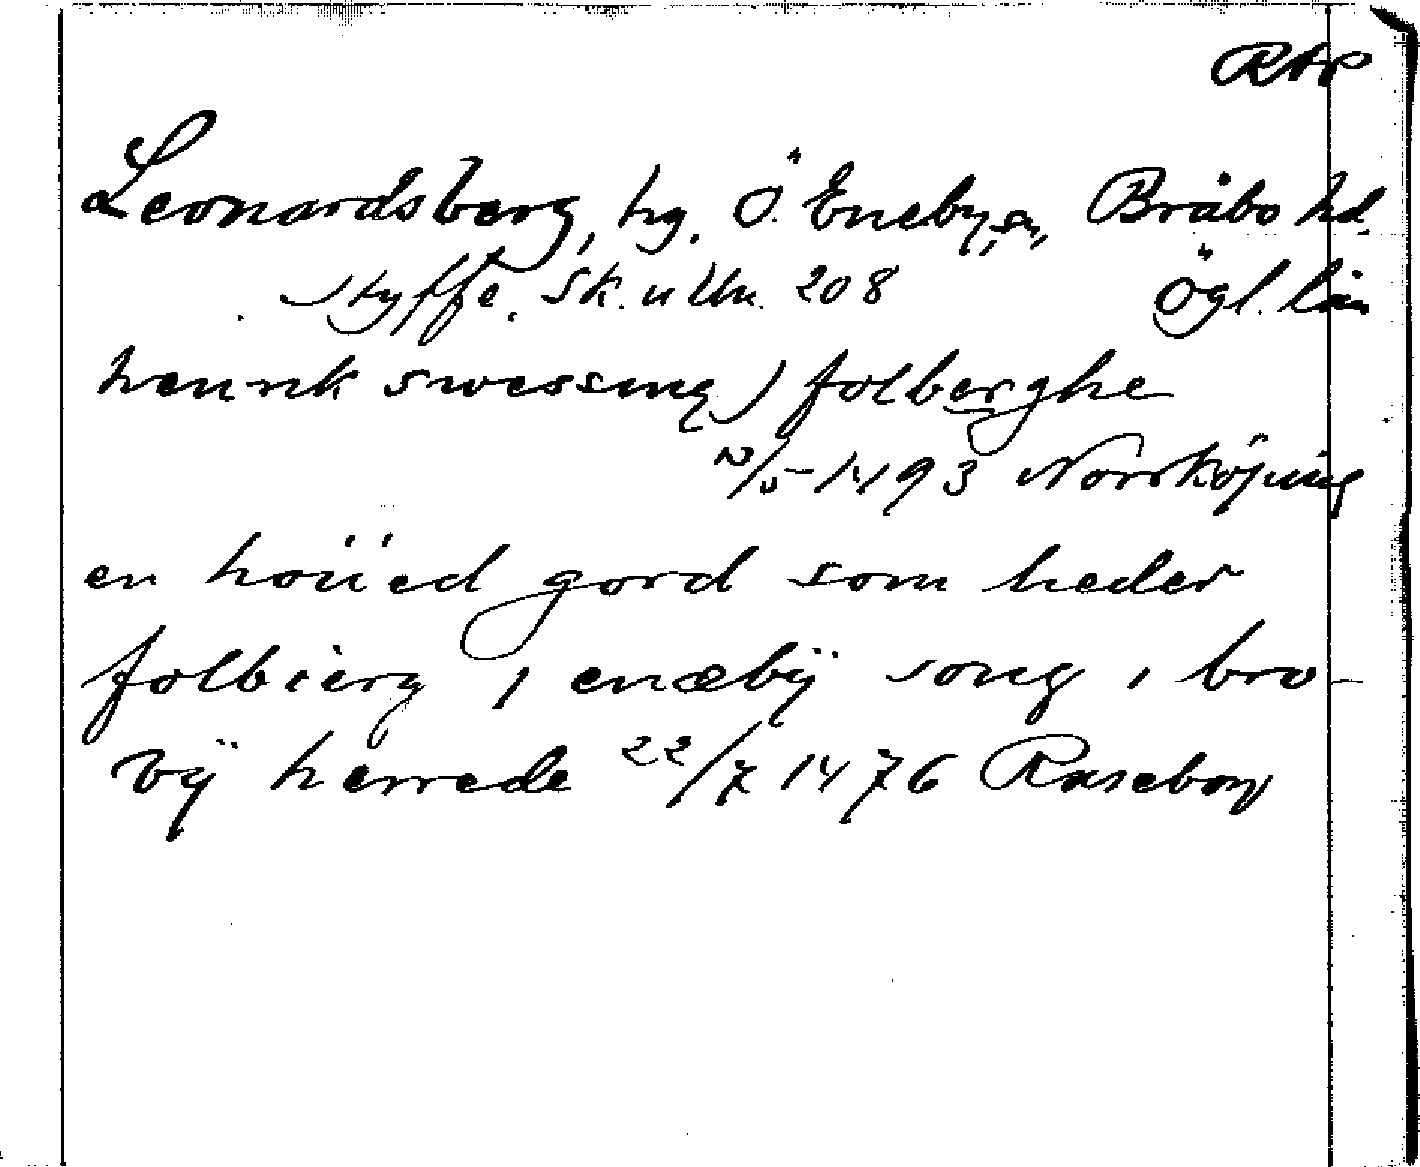 RAP
Leonardsberg, hg. Ö. Eneby sn, Bråbo hd.
Styffe. Sk. u Un. 208 Ögl. län
henrik swessing j folberghe
2/5 1493 Norrköping
en höüed gord som heder
folbierg i enæbÿ song i bro-
bÿ herrede 22/7 1476 Raseborg